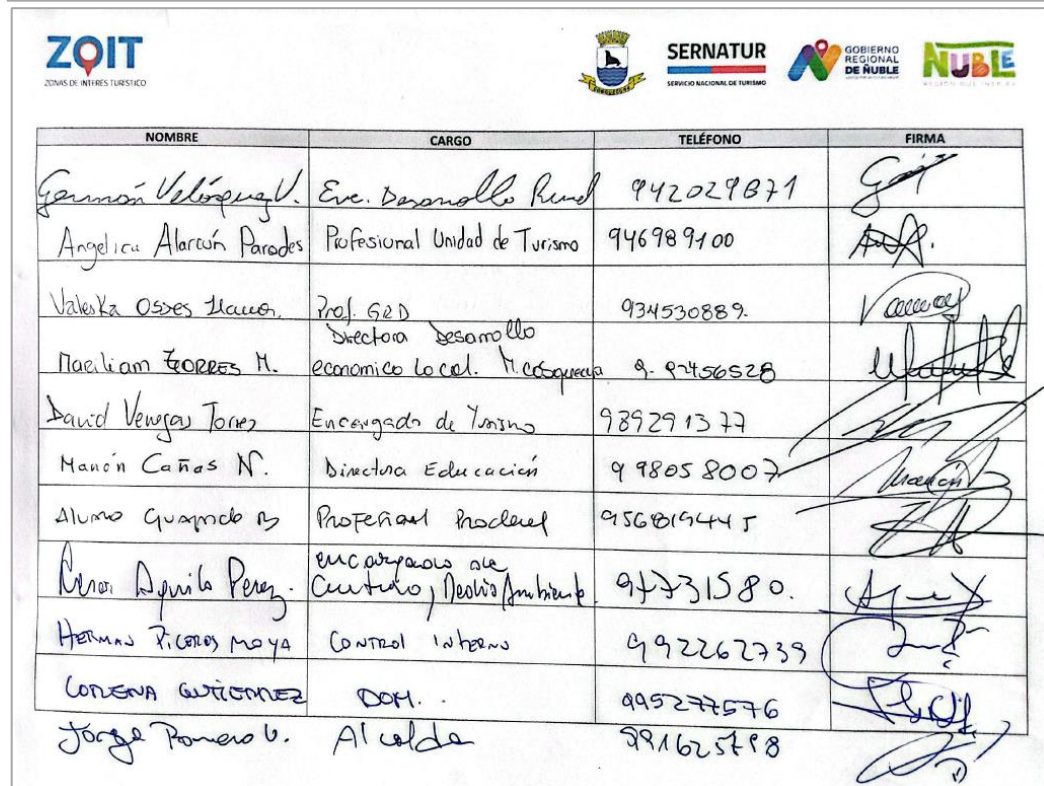 ZOIT
ZONAS DE INTERES TURÍSTICO
SERNATUR
SERVICIO NACIONAL DE TURISMO
GOBIERNO REGIONAL DE ÑUBLE
ÑUBLE
NOMBRE CARGO TELÉFONO FIRMA
Germán Velásquez V. Enc. Desarrollo Rural 942029871
Angelica Alarcón Paredes Profesional Unidad de Turismo 946989100
Valeska Osses 934530889.
Prof. GRD
Directora Desarrollo
TORRES M. economico local. 9.
David Venegas Torres Encargado de Turismo 989291377
Manón Cañas N. Directora Educación 998058007
Profesional 956819445
encargado de
Aguila Perez. Medio Ambiente 97731580.
HERMAN MOYA CONTROL INTERNO 992262739
LORENA GUTIERREZ DOM. 995277576
Jorge Romero U. Alcalde 991625798